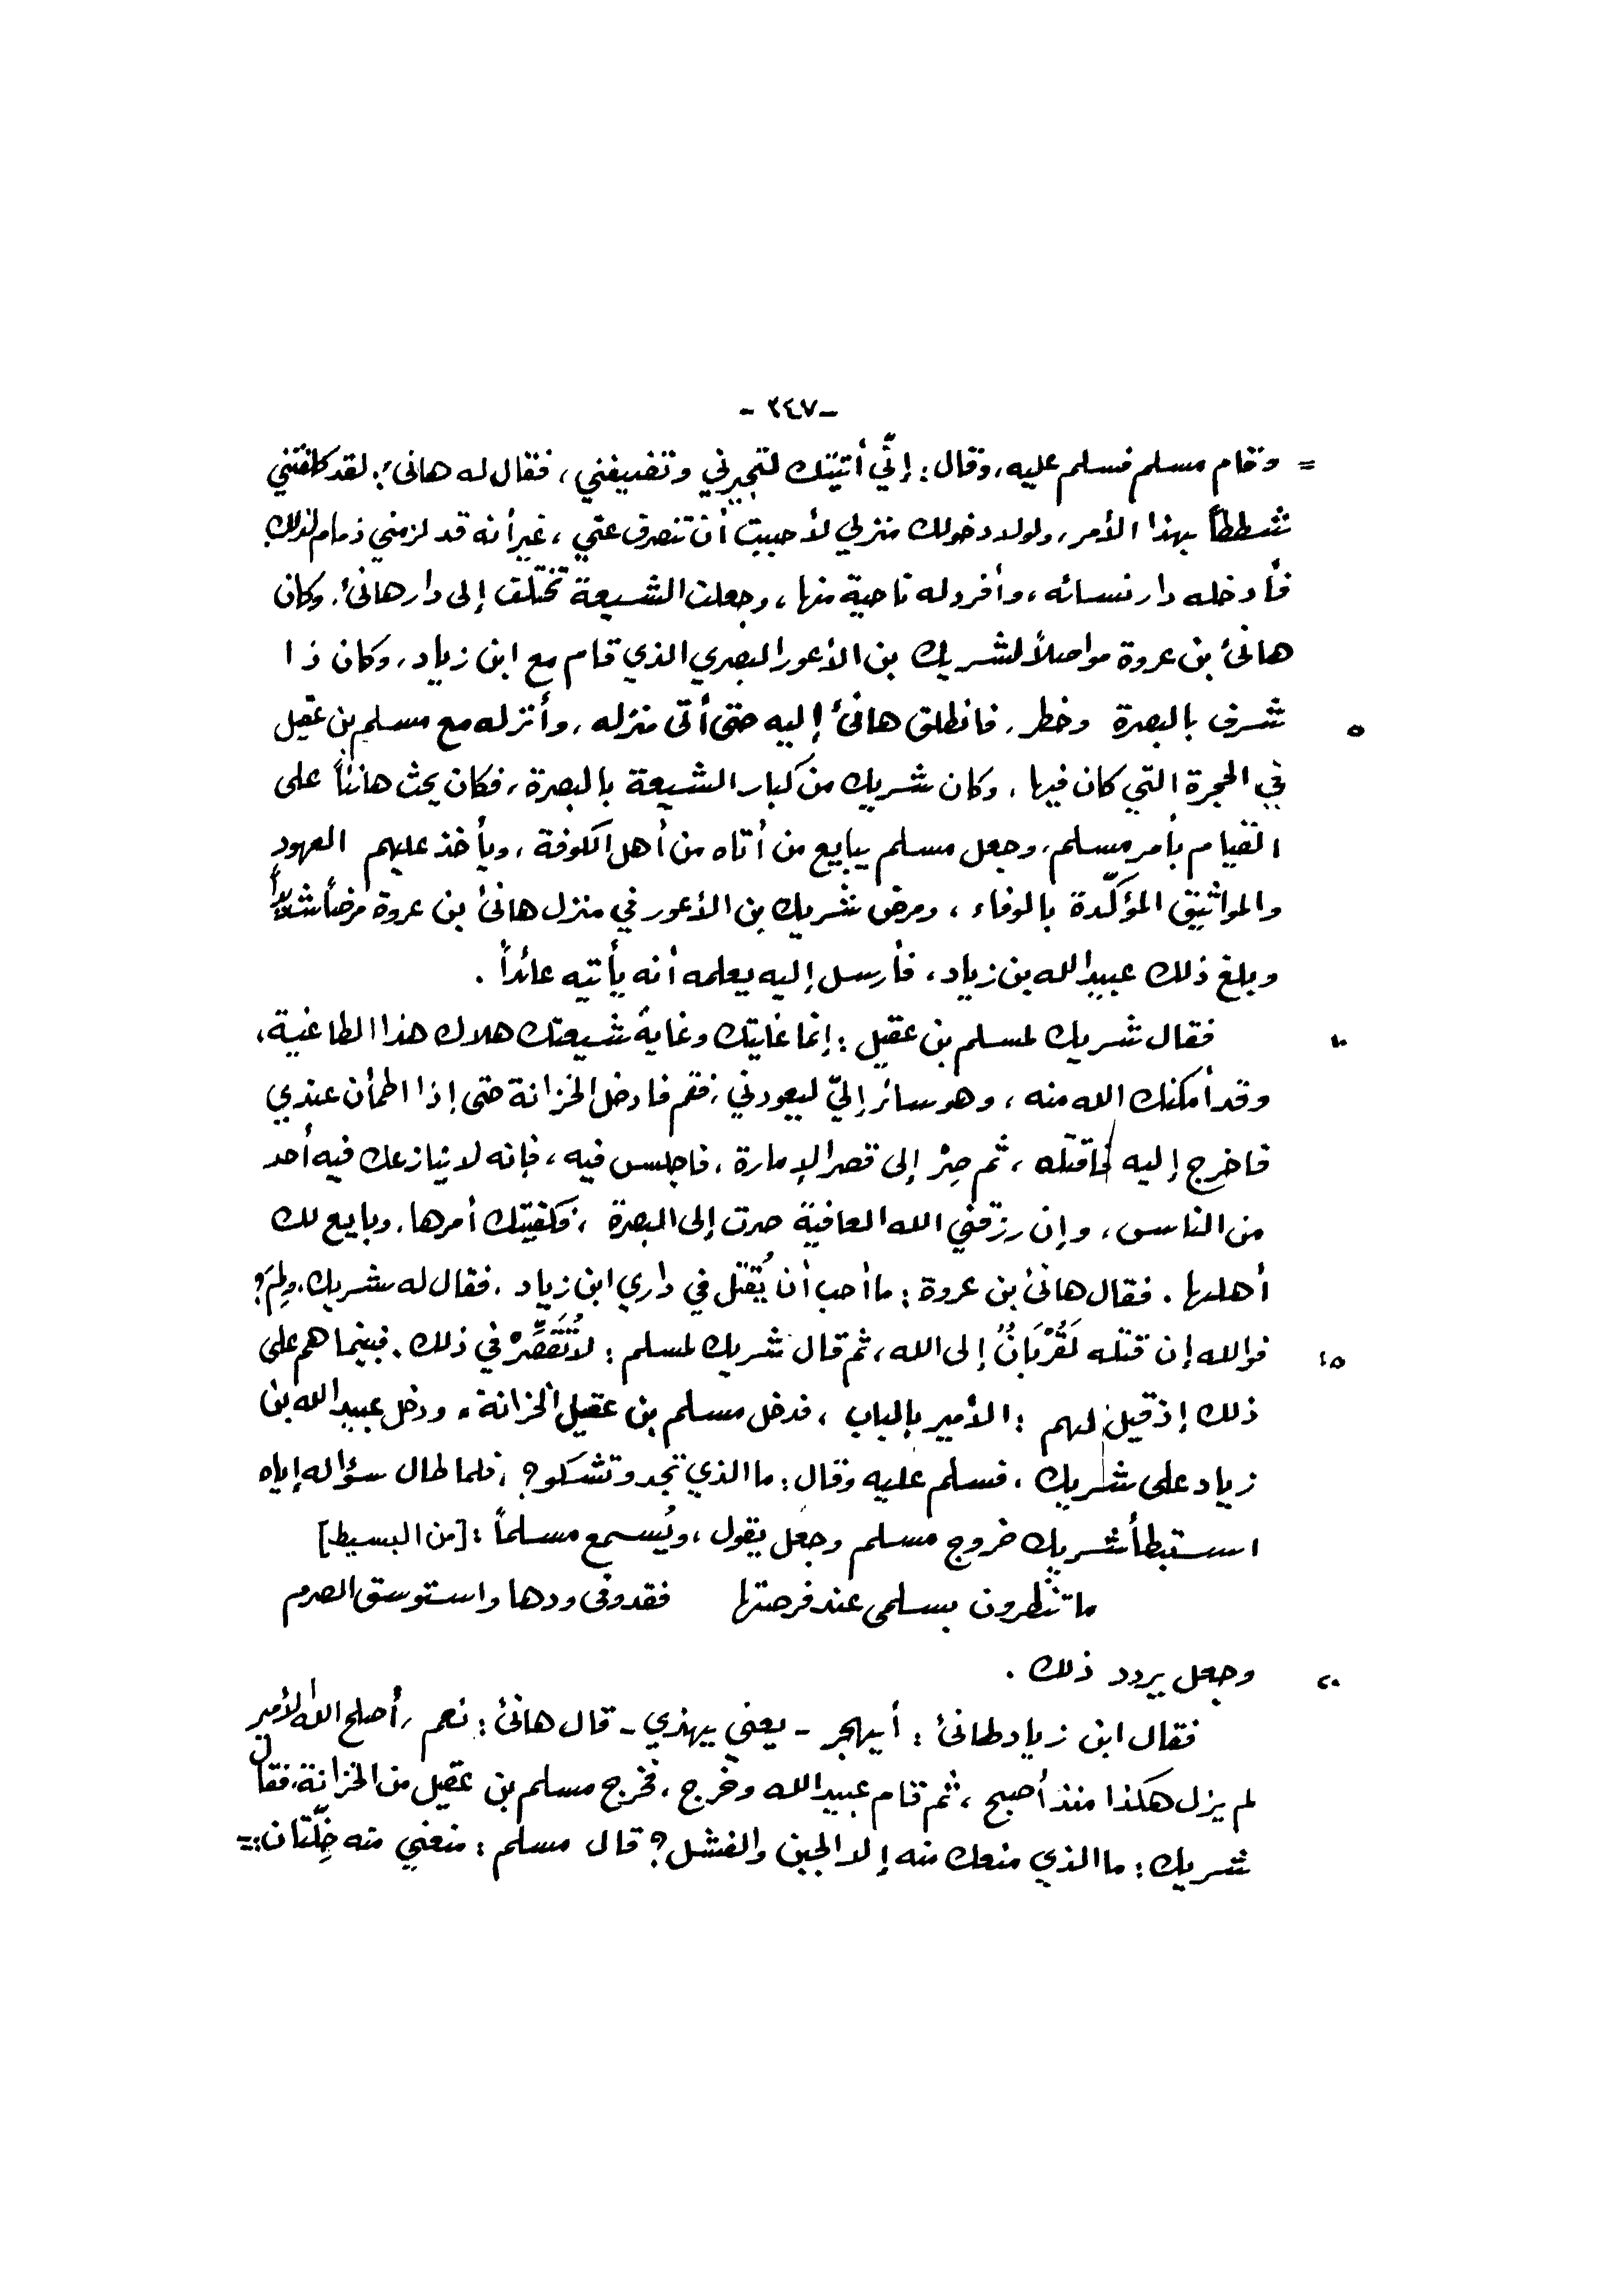 -٢٤٧-
= وقام مسلم فسلم عليه، وقال: إنّي أتيتك لتجيرني وتضيفني، فقال له هانئ: لقد كلفتني
شططاً بهذا الأمر، ولولا دخولك منزلي لأحببت أن تنصرف عني، غير أنه قد لزمني ذمام لذلك
فأدخله دار نسائه، وأفرد له ناحية منها، وجعلت الشيعة تختلف إلى دار هانئ. وكان
هانئ بن عروة مواصلاً لشريك بن الأعور البصري الذي قام مع ابن زياد، وكان ذا
شرف بالبصرة وخطر، فانطلق هانئ إليه حتى أتى منزله، وأنزله مع مسلم بن عقيل ٥
في الحجرة التي كان فيها، وكان شريك من كبار الشيعة بالبصرة، فكان يحث هانئاً على
القيام بأمر مسلم، وجعل مسلم يبايع من أتاه من أهل الكوفة، ويأخذ عليهم العهود
والمواثيق المؤكّدة بالوفاء، ومرض شريك بن الأعور في منزل هانئ بن عروة مرضاً شديداً
وبلغ ذلك عبيد الله بن زياد، فأرسل إليه يعلمه أنه يأتيه عائداً.
فقال شريك لمسلم بن عقيل: إنما غايتك وغاية شيعتك هلاك هذا الطاغية، ١٠
وقد أمكنك الله منه، وهو سائر إليّ ليعودني، فقم فادخل الخزانة حتى إذا اطمأن عندي
فاخرج إليه فاقتله، ثم صِرْ إلى قصر الإمارة، فاجلس فيه، فإنه لا ينازعك فيه أحد
من الناس، وإن رزقني الله العافية صرت إلى البصرة، فكفيتك أمرها، وبايع لك
أهلها. فقال هانئ بن عروة: ما أحب أن يُقتل في داري ابن زياد. فقال له شريك: ولِمَ؟
فوالله إن قتله لَقُرْبَانٌ إلى الله، ثم قال شريك لمسلم: لا تُقَصِّرْ في ذلك. فبينما هم على ١٥
ذلك إذ قيل لهم: الأمير بالباب، فدخل مسلم بن عقيل الخزانة، ودخل عبيد الله بن
زياد على شريك، فسلم عليه وقال: ما الذي تجد وتشكو؟، فلما طال سؤاله إياه
استبطأ شريك خروج مسلم وجعل يقول، ويُسمع مسلماً: [من البسيط]
ما تنظرون بسلمى عند فرصتها فقد وفى ودها واستوسق الصرم
وجعل يردد ذلك. ٢٠
فقال ابن زياد لهانئ: أيهجر - يعني يهذي - قال هانئ: نعم، أصلح الله الأمير
لم يزل هكذا منذ أصبح، ثم قام عبيد الله وخرج، فخرج مسلم بن عقيل من الخزانة، فقال
شريك: ما الذي منعك منه إلا الجبن والفشل؟ قال مسلم: منعني منه خلّتان: =